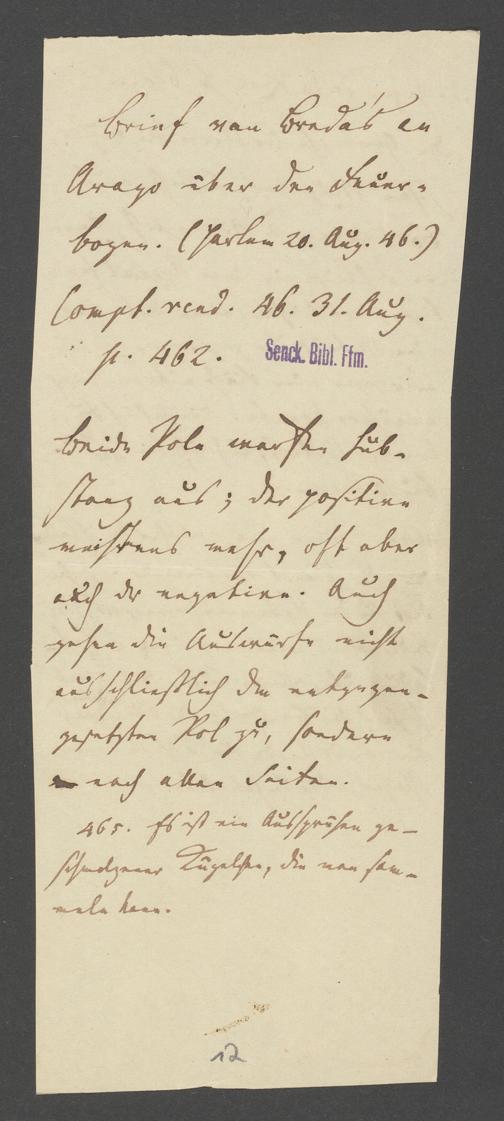 Brief van Breda's an
Arago über den Feuer-
bogen. (Harlem 20. Aug. 46.)
Compt. rend. 46. 31. Aug.
p. 462.
Senck. Bibl. Ffm.
Beide Pole werfen Sub-
stanz aus; der positive
meistens mehr, oft aber
auch der negative. Auch
gehen die Auswürfe nicht
ausschließlich dem entgegen-
gesetzten Pol zu, sondern
nach allen Seiten.
465. Es ist ein Aussprühen ge-
schmolzener Kügelchen, die man sam-
meln kann.
12